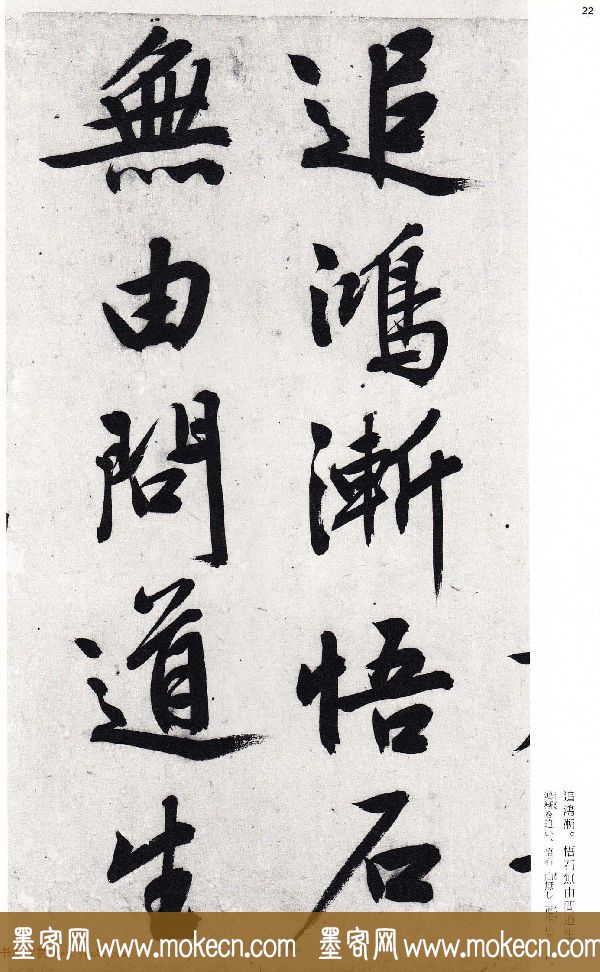 22
追鴻漸悟石
無由問道生
追鴻漸。悟石無由問道生
墨客网 www.mokecn.com 墨客网 www.mokecn.com